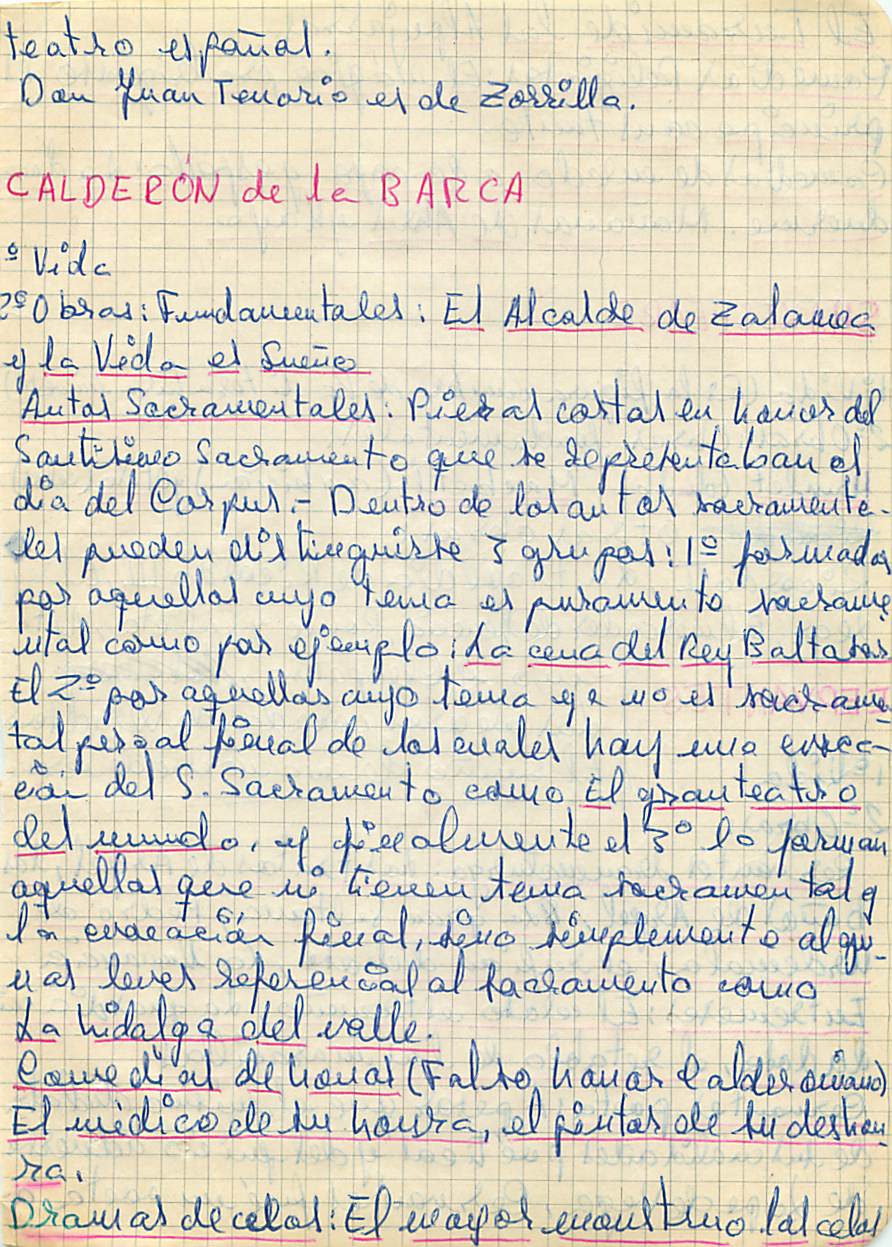 teatro español.
Don Juan Tenorio es de Zorrilla.
CALDERÓN de la BARCA
º Vida
2º Obras: Fundamentales: El Alcalde de Zalamea
y la Vida es Sueño
Autos Sacramentales: Piezas cortas en honor del
Santísimo Sacramento que se representaban el
día del Corpus.- Dentro de los autos sacramenta-
les pueden distinguirse 3 grupos: 1º formados
por aquellos cuyo tema es puramento sacrame
ntal como por ejemplo: La cena del Rey Baltasar
El 2º por aquellos cuyo tema ya no es sacrame
tal pero al final de los cuales hay una evoca-
ción del S. Sacramento como El gran teatro
del mundo, y finalmente el 3º lo forman
aquellos que ni tienen tema sacramental y
la evocación final, sino simplemento algu-
nas leves referencias al sacramento como
La hidalga del valle.
Comedias de honor (Falso honor Calderoniano)
El médico de su honra, el pintor de su deshon
ra.
Dramas de celos: El mayor monstruo los celos